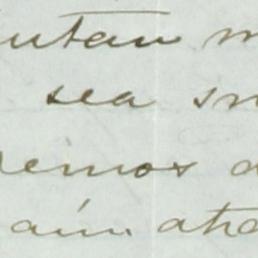 utan m
sea su
remos d
aún. aho